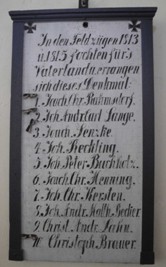 In den Feldzügen 1813
u. 1815 fochten für's
Vaterland u. errangen
sich dieses Denkmal:
1. Joach. Chr.
2. Joh. And. Carl Lange.
3. Joach.
4. Joh. Keckling.
5. Joh. Peter Buchholz.
6. Joach. Chr. Henning.
7. Joh. Chr. Kersten.
8. Joh. Andr.
9. Christ. Andr.
10. Christoph Brauer.